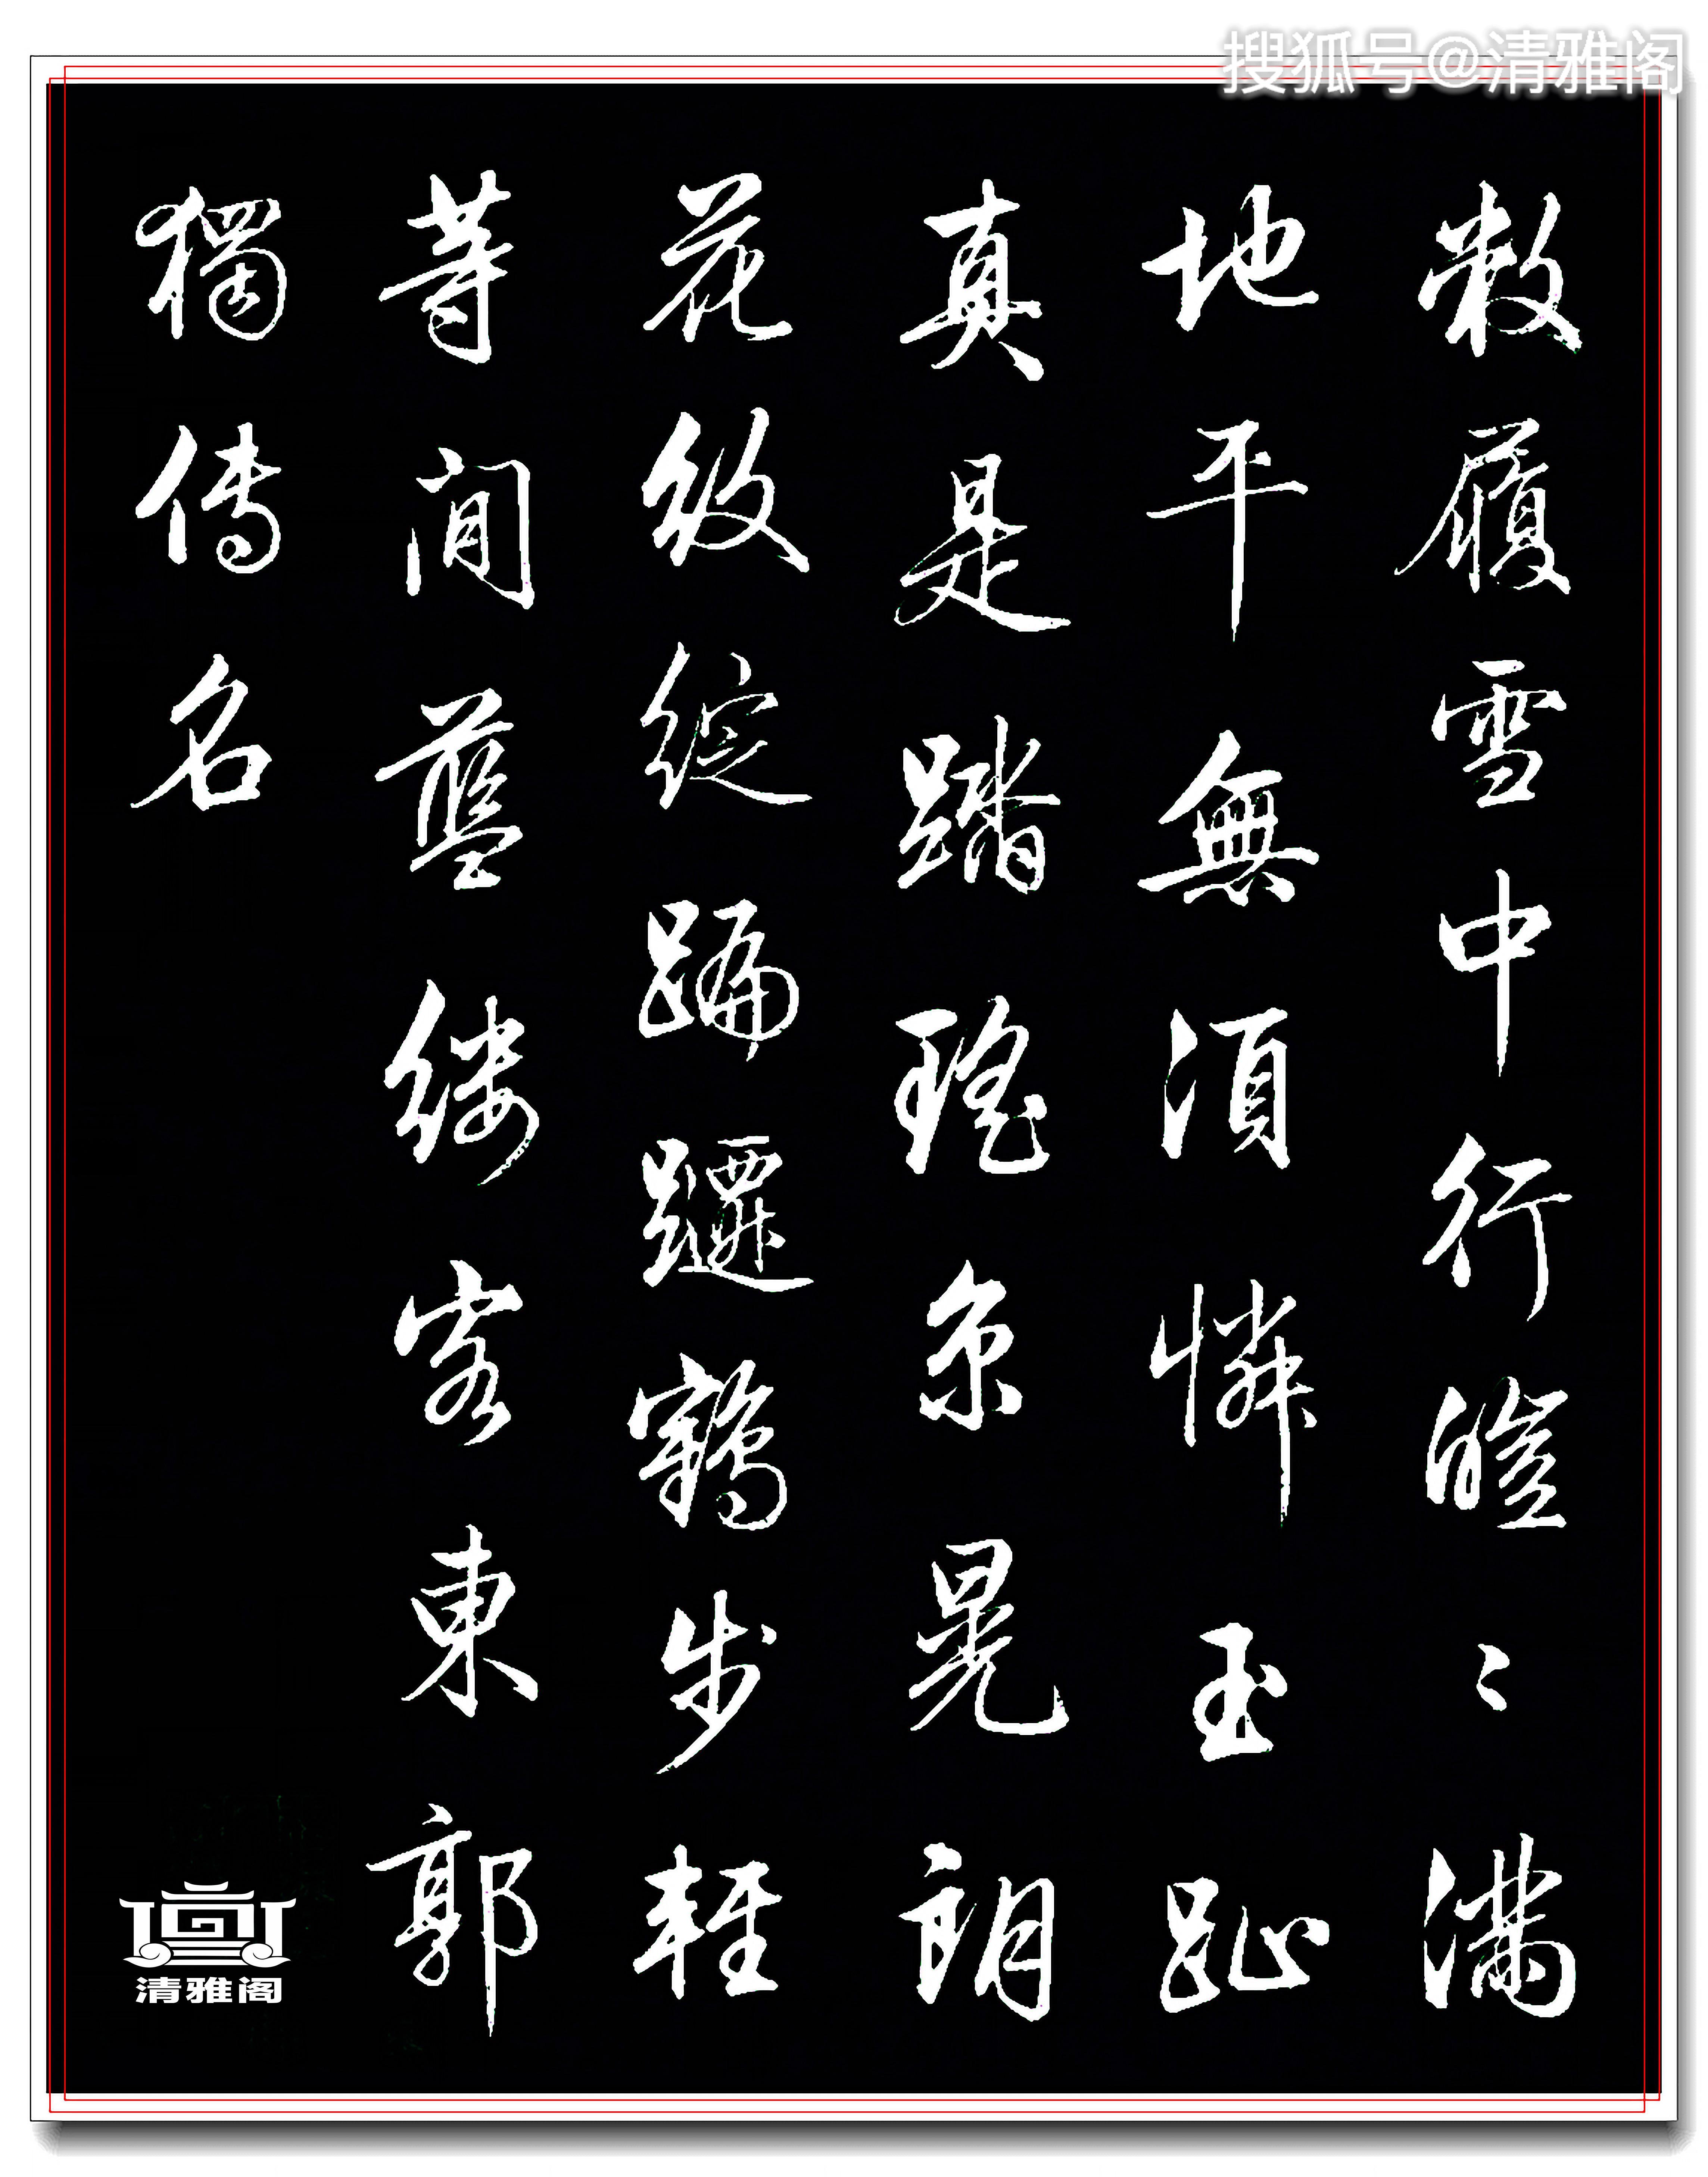 搜狐号@清雅阁
敝履雪中行皚〻滿
地平無須憐玉趾
真是踏瑤京晃朗
花紋綻蹁躚鶴步輕
等閒藍縷客東郭
獨传名
清雅阁